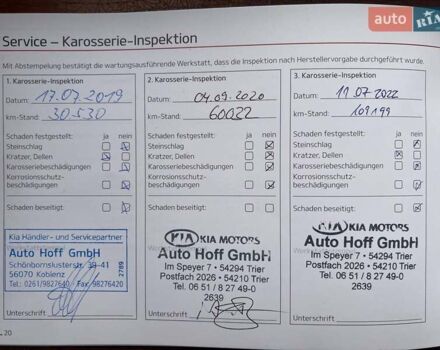 auto RIA
Service – Karosserie-Inspektion
Mit Abstempelung bestätigt die wartungsausführende Werkstatt, dass die Inspektion nach Herstellervorgabe durchgeführt wurde.
1. Karosserie-Inspektion
Datum: 17.07.2019
km-Stand: 30530
Schaden festgestellt: ja nein
Steinschlag
Kratzer, Dellen
Karosseriebeschädigungen
Korrosionsschutz-
beschädigungen
Schaden beseitigt:
Kia Händler- und Servicepartner
Auto Hoff GmbH
Schönbornsluster Str. 39-41
56070 Koblenz
Tel.: 0261/9827640 · Fax: 98276420
2789
Unterschrift
2. Karosserie-Inspektion
Datum: 04.09.2020
km-Stand: 60022
Schaden festgestellt: ja nein
Steinschlag
Kratzer, Dellen
Karosseriebeschädigungen
Korrosionsschutz-
beschädigungen
Schaden beseitigt:
KIA KIA MOTORS
Auto Hoff GmbH
Im Speyer 7 • 54294 Trier
Postfach 2026 • 54210 Trier
Tel. 06 51 / 8 27 49-0
2639
Unterschrift
3. Karosserie-Inspektion
Datum: 11.07.2022
km-Stand: 109199
Schaden festgestellt: ja nein
Steinschlag
Kratzer, Dellen
Karosseriebeschädigungen
Korrosionsschutz-
beschädigungen
Schaden beseitigt:
KIA KIA MOTORS
Auto Hoff GmbH
Im Speyer 7 • 54294 Trier
Postfach 2026 • 54210 Trier
Tel. 06 51 / 8 27 49-0
2639
Unterschrift
20